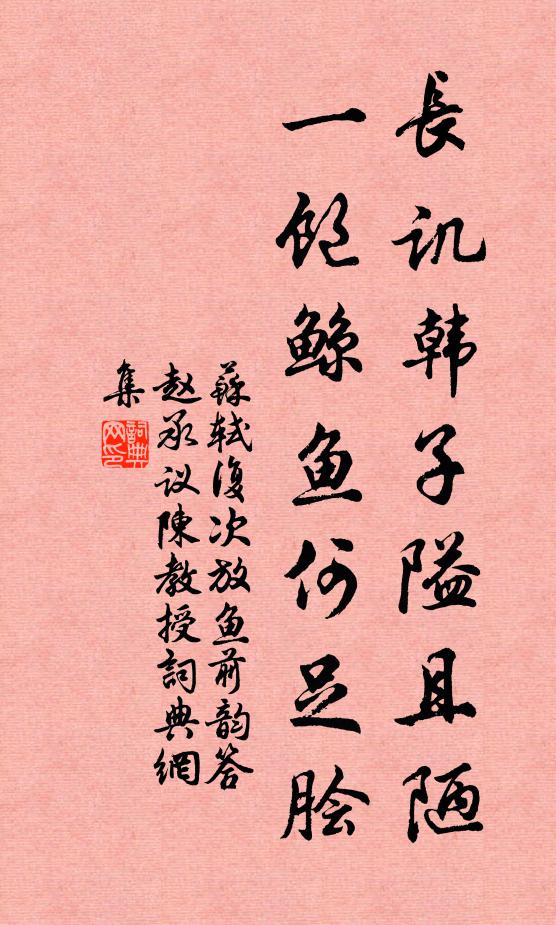 長讥韩子隘且陋
一饱鲸鱼何足脍
蘇轼復次放鱼前韵答
赵承议陳教授詞典網
集
詞典网印